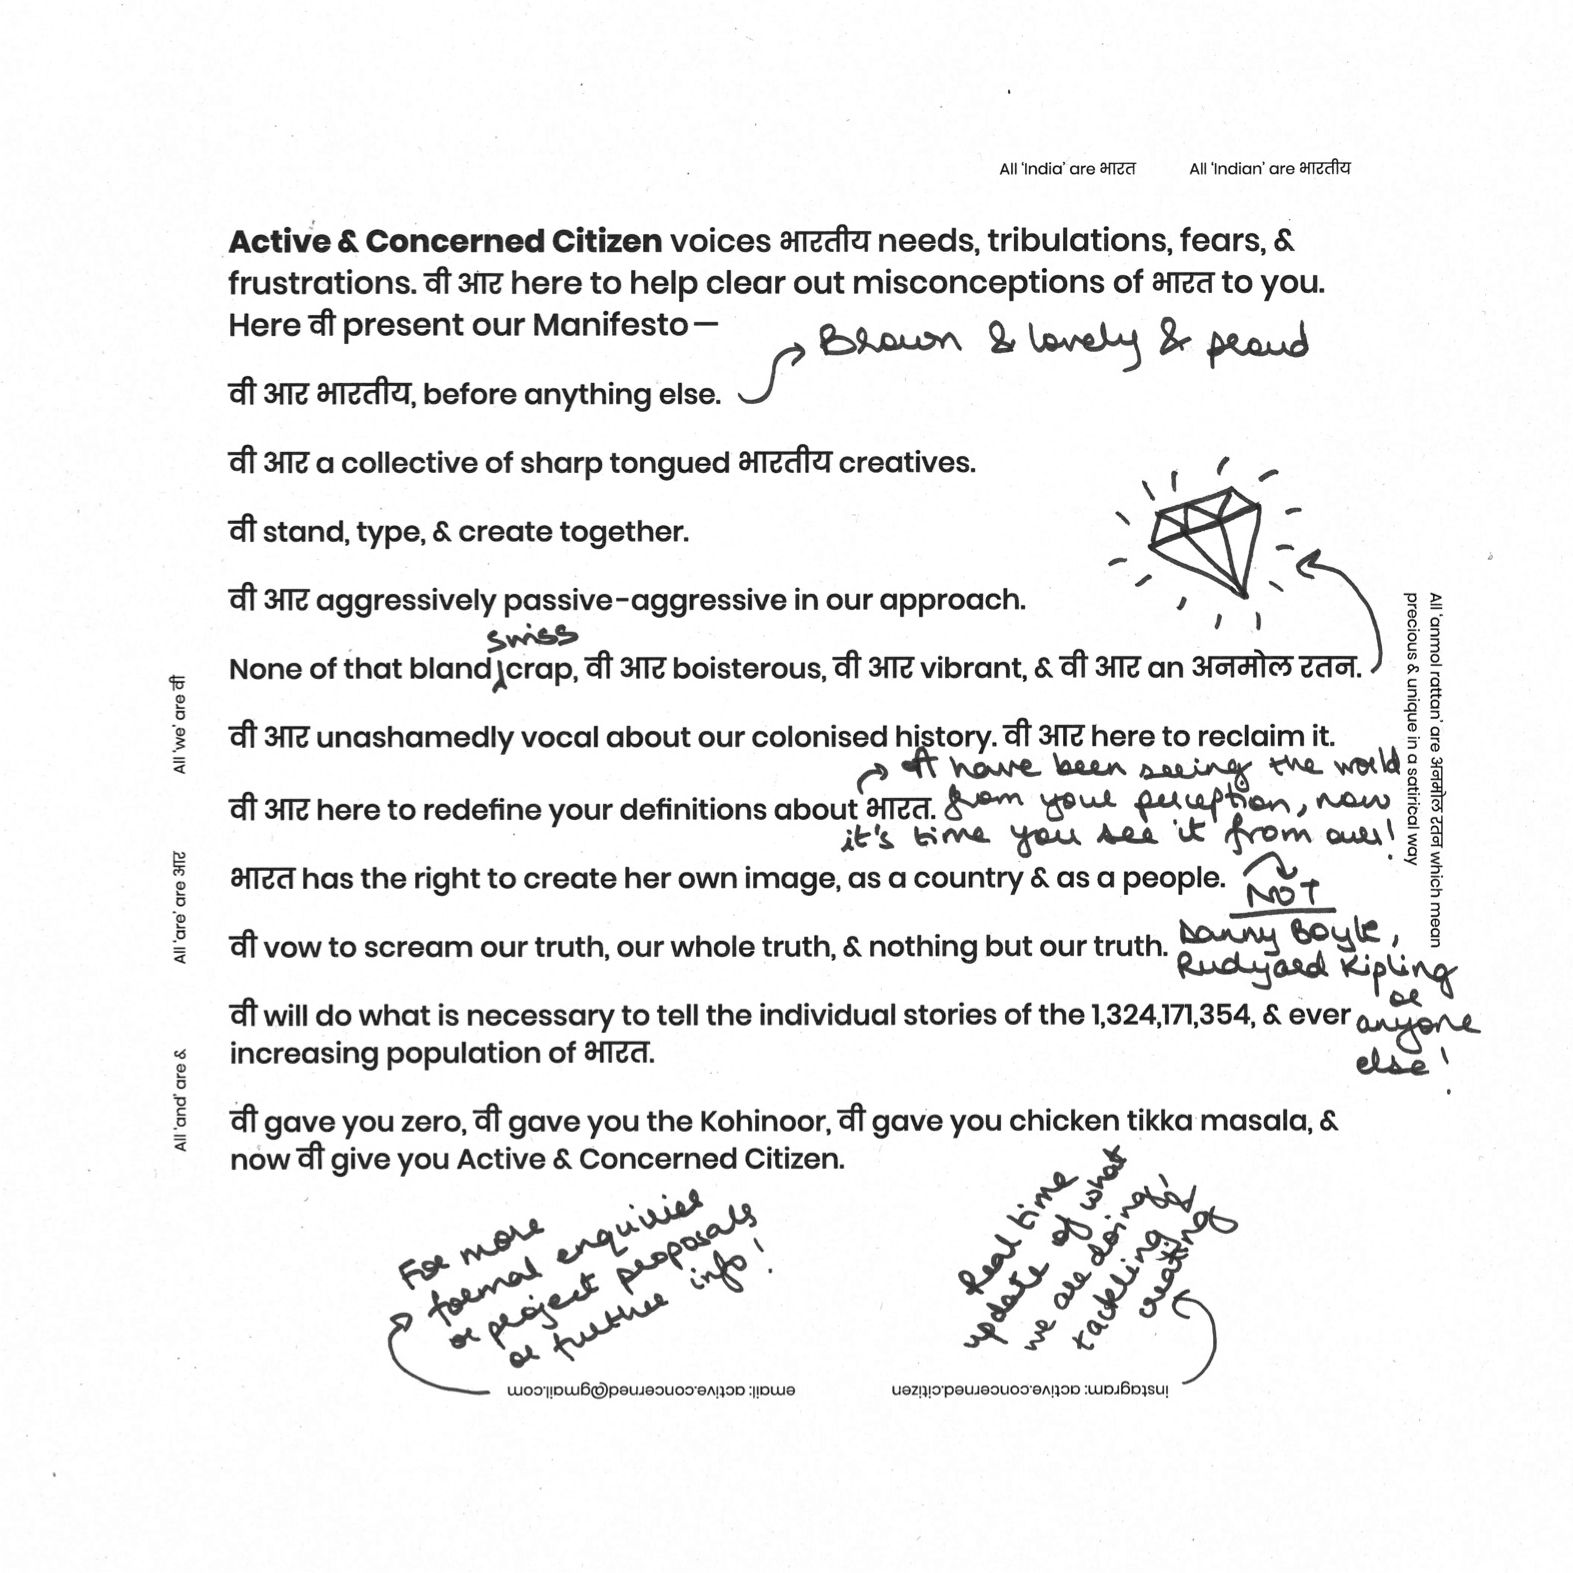 All 'India' are भारत
All 'Indian' are भारतीय
Active & Concerned Citizen voices भारतीय needs, tribulations, fears, &
frustrations. वी आर here to help clear out misconceptions of भारत to you.
Here वी present our Manifesto—
Brown & lovely & proud
वी आर भारतीय, before anything else.
वी आर a collective of sharp tongued भारतीय creatives.
वी stand, type, & create together.
वी आर aggressively passive-aggressive in our approach.
swiss
None of that bland crap, वी आर boisterous, वी आर vibrant, & वी आर an अनमोल रतन.
वी आर unashamedly vocal about our colonised history. वी आर here to reclaim it.
have been seeing the world
वी आर here to redefine your definitions about भारत.
from your perception, now
it's time you see it from ours!
भारत has the right to create her own image, as a country & as a people.
NOT
Danny Boyle,
Rudyard Kipling
or
anyone
else!
वी vow to scream our truth, our whole truth, & nothing but our truth.
वी will do what is necessary to tell the individual stories of the 1,324,171,354, & ever
increasing population of भारत.
वी gave you zero, वी gave you the Kohinoor, वी gave you chicken tikka masala, &
now वी give you Active & Concerned Citizen.
For more
formal enquiries
or project proposals
or further info!
Real time
update of what
we are doing &
tackling
creating
email: active.concerned@gmail.com
instagram: active.concerned.citizen
All 'we' are वी
All 'are' are आर
All 'and' are &
All 'anmol rattan' are अनमोल रतन which mean
precious & unique in a satirical way